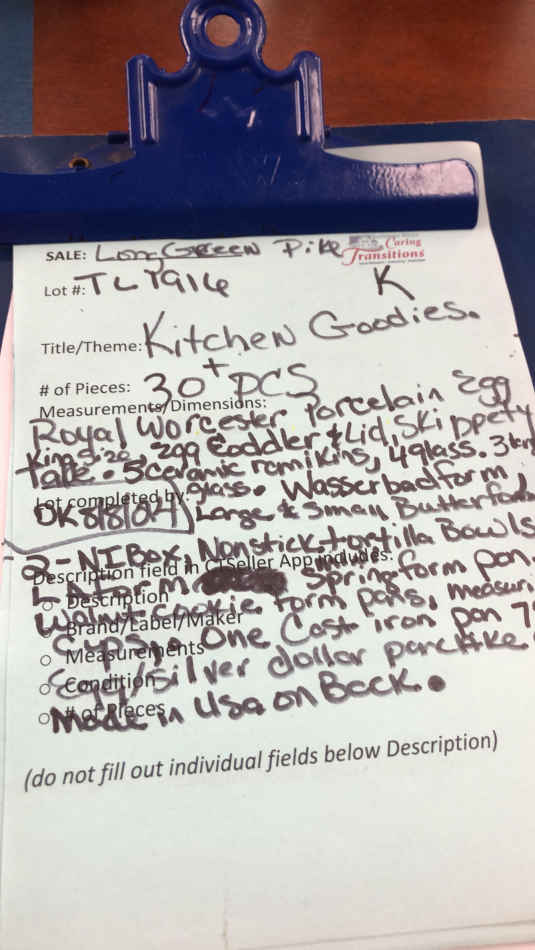 SALE: Long Green Pike Caring
Transitions
Lot #: TL 7916 K
Title/Theme: Kitchen Goodies.
# of Pieces: 30+ PCS
Measurements/Dimensions:
Royal Worcester Porcelain Egg
King Size, Egg Coddler & Lid, Skippety
Tale. 5 ceramic ramikins, 4 glass. 3
Lot completed by: glass. Wasserbadform
DK 8/8/024 Large & Small
2-NIBox, Nonstick tortilla Bowls
Description field in CTSeller App includes:
Springform pan.
○ Description
Walnut cookie form pans,
○ Brand/Label/Maker
cups. One Cast iron pan 7"
○ Measurements
Egg/silver dollar
○ Condition
○ # of Pieces
Made in Usa on Back.
(do not fill out individual fields below Description)